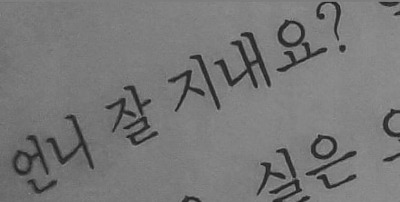 언니 잘 지내요?
싶은